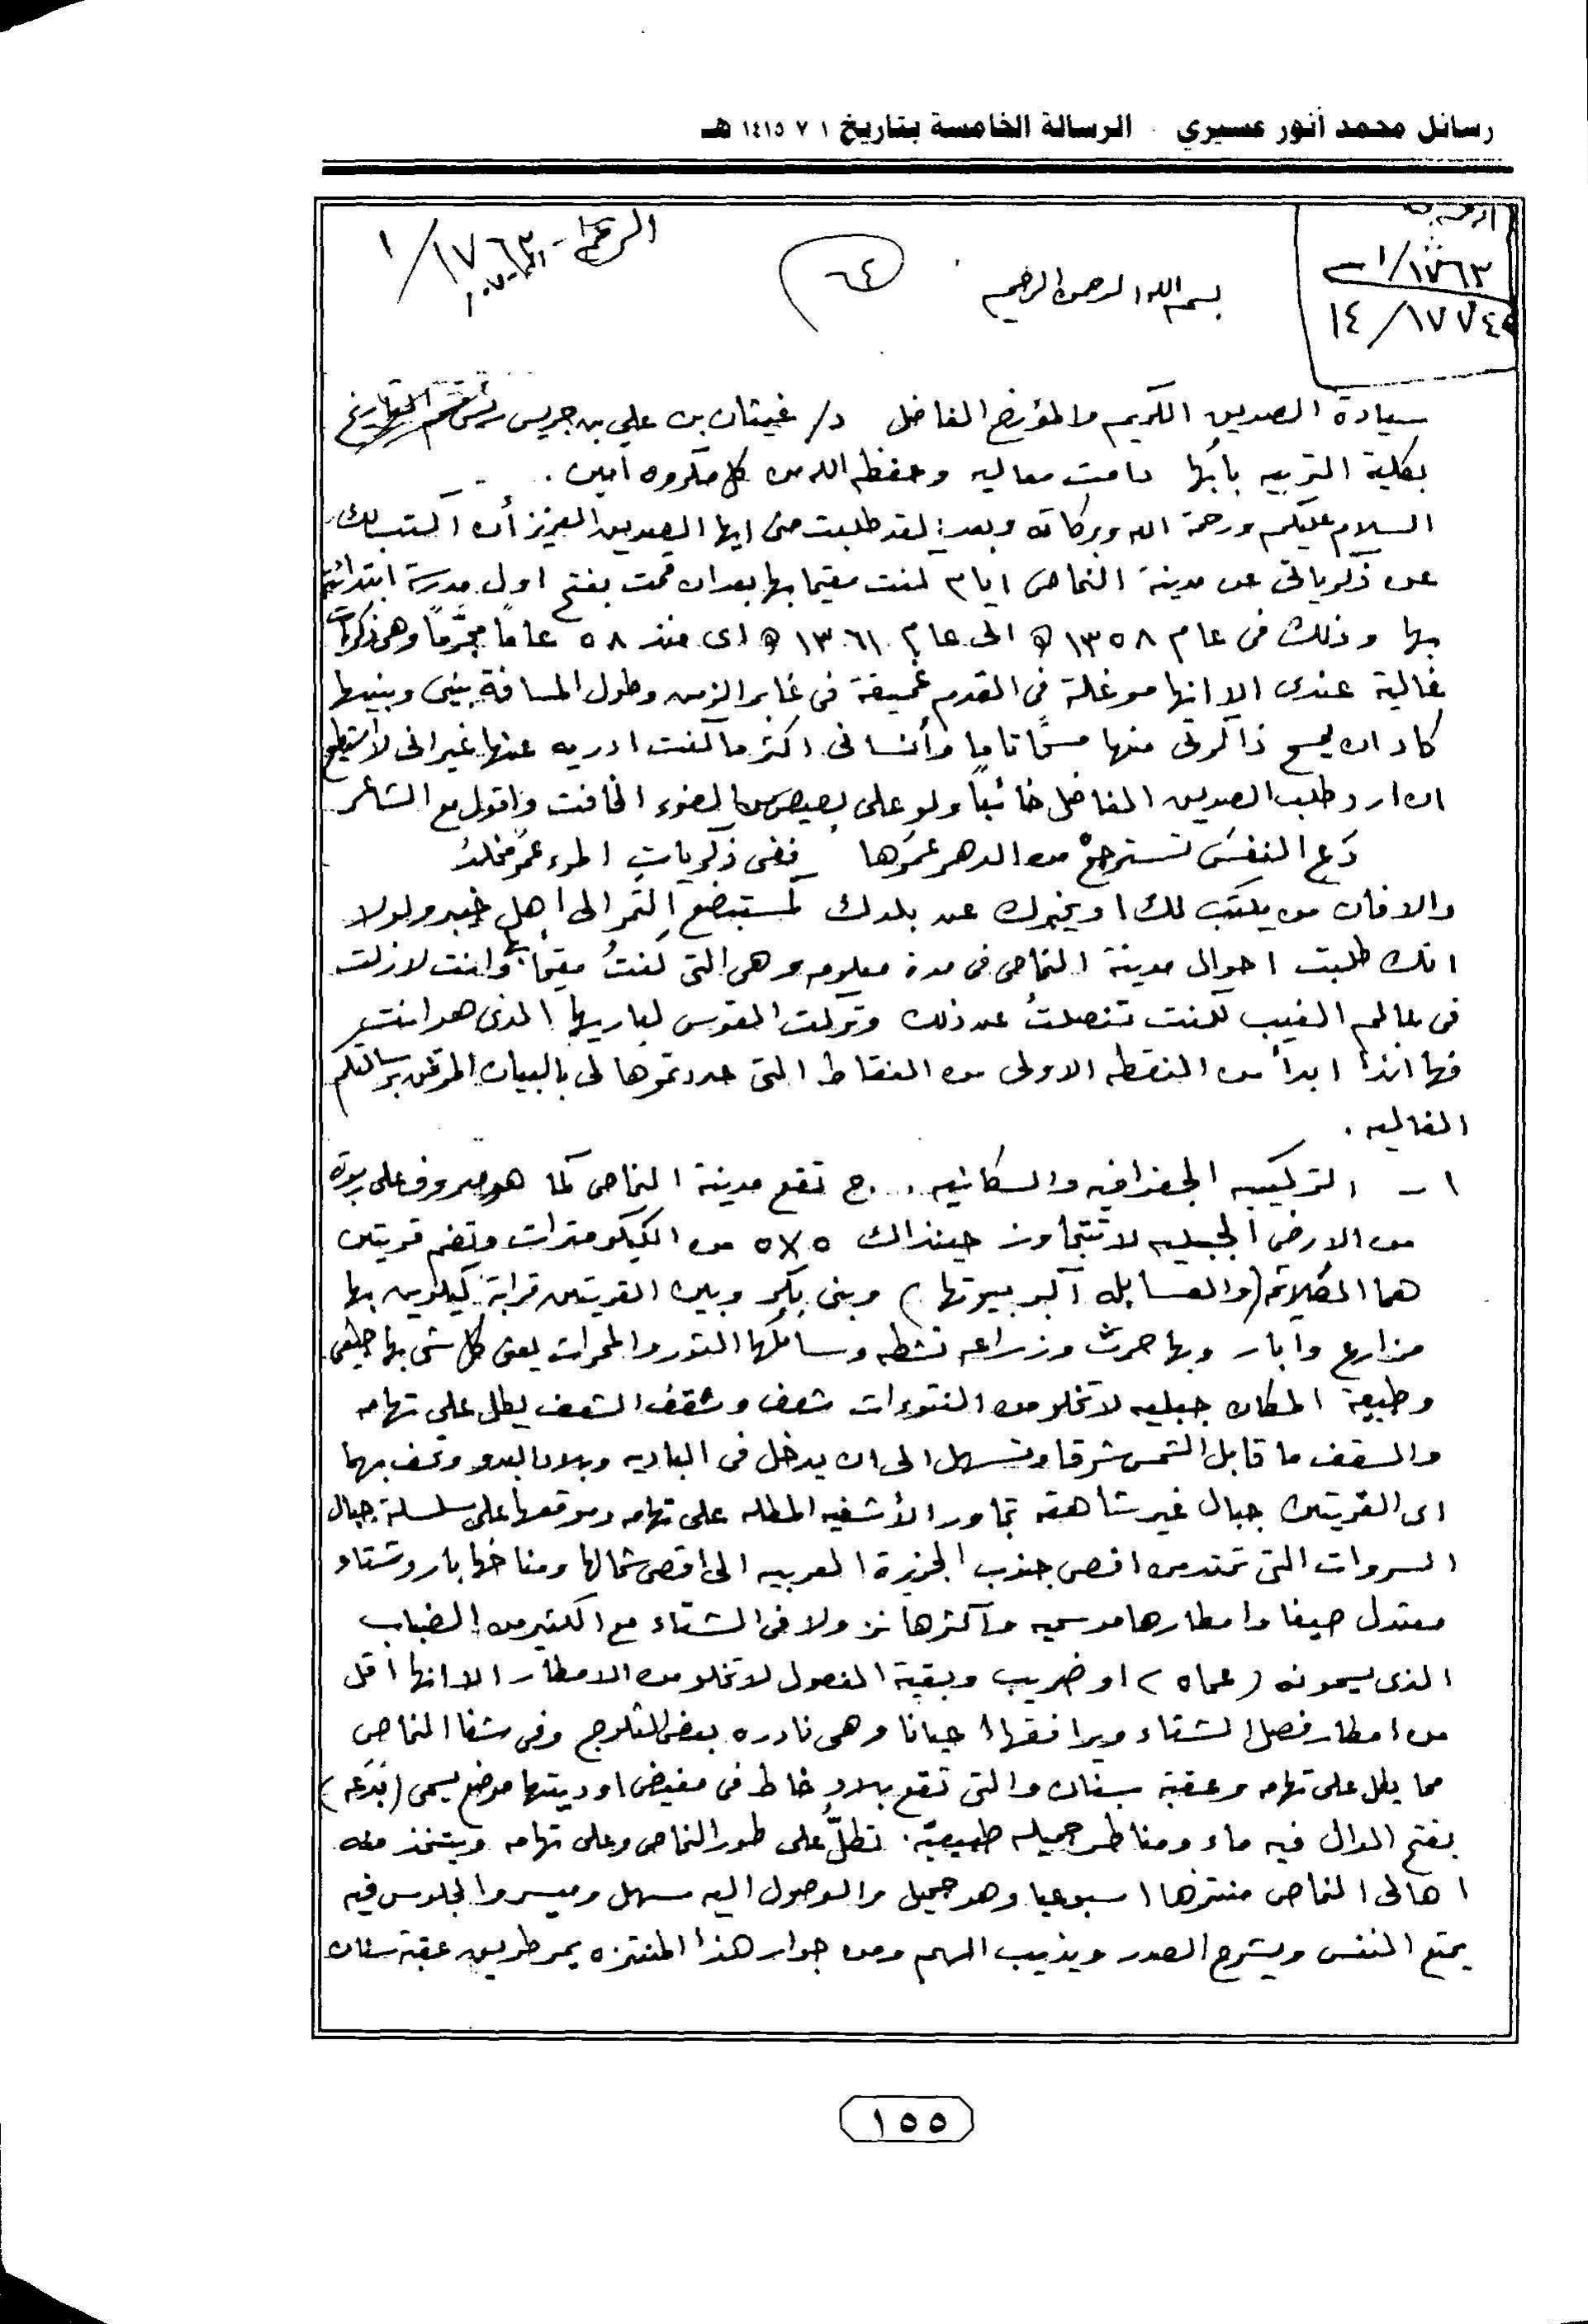 رسائل محمد أنور عسيري - الرسالة الخامسة بتاريخ ١ ٧ ١٤١٥ هـ
الرقم - ١٧٦٣ / ١
١٧٦٣ / ١
١٧٧٤ / ١٤
٦٤
بسم الله الرحمن الرحيم
سيادة الصديق الكريم والمؤرخ الفاضل د/ غيثان بن علي بن جريس رئيس قسم التاريخ
بكلية التربيه بأبها دامت معاليه وحفظه الله من كل مكروه آمين .
السلام عليكم ورحمة الله وبركاته وبعد : لقد طلبت منى ايها الصديق العزيز أن اكتب لك
عن ذكرياتى عن مدينة النماص ايام كنت مقيما بها بعد ان قمت بفتح اول مدرسة ابتدائية
بها وذلك فى عام ١٣٥٨ ه الى عام ١٣٦١ ه اى منذ ٥٨ عاماً مجرَّماً وهى ذكريات
غالية عندى الا انها موغلة فى القدم عميقة فى غابر الزمن وطول المسافة بينى وبينها
كاد ان يمسح ذاكرتى منها مسحًا تاما وأنسانى اكثر ما كنت ادريه عنها غير انى لا استطيع
ان ارد طلب الصديق الفاضل خائباً ولو على بصيص من الضوء الخافت واقول مع الشاعر
دَع النفسَ تسترجعْ من الدهر عمرَها ففى ذكرياتِ المرء عمرٌ مخلدُ
والا فان من يكتب لك او يخبرك عن بلدك كمستبضع التمر الى اهل خيبر ولولا
انك طلبت احوال مدينة النماص فى مدة معلومه وهى التى كنتُ مقيماً بها وانت لازلت
فى عالم الغيب لكنت تنصلتُ عن ذلك وتركت القوس لباريها الذى هو انت
فها انذا ابدأ من النقطه الاولى من النقاط التى حددتموها لى بالبيان المرفق برسالتكم
الغاليه .
١ - التركيبه الجغرافيه والسكانيه .. ج تقع مدينة النماص كما هو معروف على ربوة
من الارض الجبليه لا تتجاوز حينذاك ٥×٥ من الكيلومترات وتضم قريتين
هما الكلاثمه (والعسابله اكبر بيوتها) وبنى بكر وبين القريتين قرابة كيلوين بها
مزارع وآبار وبها حرث وزراعه نشطه وسائلها الثور والمحراث يعنى كل شى بها
وطبيعة المكان جبليه لا تخلو من النتوءات شعف وشقف الشعف يطل على تهامه
والسقف ما قابل الشمس شرقا وتسهل الى ان يدخل فى الباديه وبلاد البدو وتحف بهما
اى القريتين جبال غير شاهقه تجاور الأشفيه المطله على تهامه وموقعها على سلسلة جبال
السروات التى تمتد من اقصى جنوب الجزيرة العربيه الى اقصى شمالها ومناخها بارد شتاء
معتدل صيفا وامطارها موسميه واكثرها نزولا فى الشتاء مع الكثير من الضباب
الذى يسمونه (عماه) او ضريب وبقية الفصول لا تخلو من الامطار الا انها اقل
من امطار فصل الشتاء ويرافقها احيانا وهى نادره بعض الثلوج وفى شفا النماص
مما يطل على تهامه وعقبة سنان والتى تقع ببلاد خاط فى مفيض اوديتها موضع يسمى
بفتح الدال فيه ماء ومناظر جميله طبيعية . تطلُّ على طور النماص وعلى تهامه ويتخذ منه
اهالى النماص منتزها اسبوعيا وهو جميل والوصول اليه سهل وميسر والجلوس فيه
يمتع النفس ويشرح الصدر ويذيب الهم ومن جوار هذا المنتزه يمر طريق عقبة سنان
١٥٥